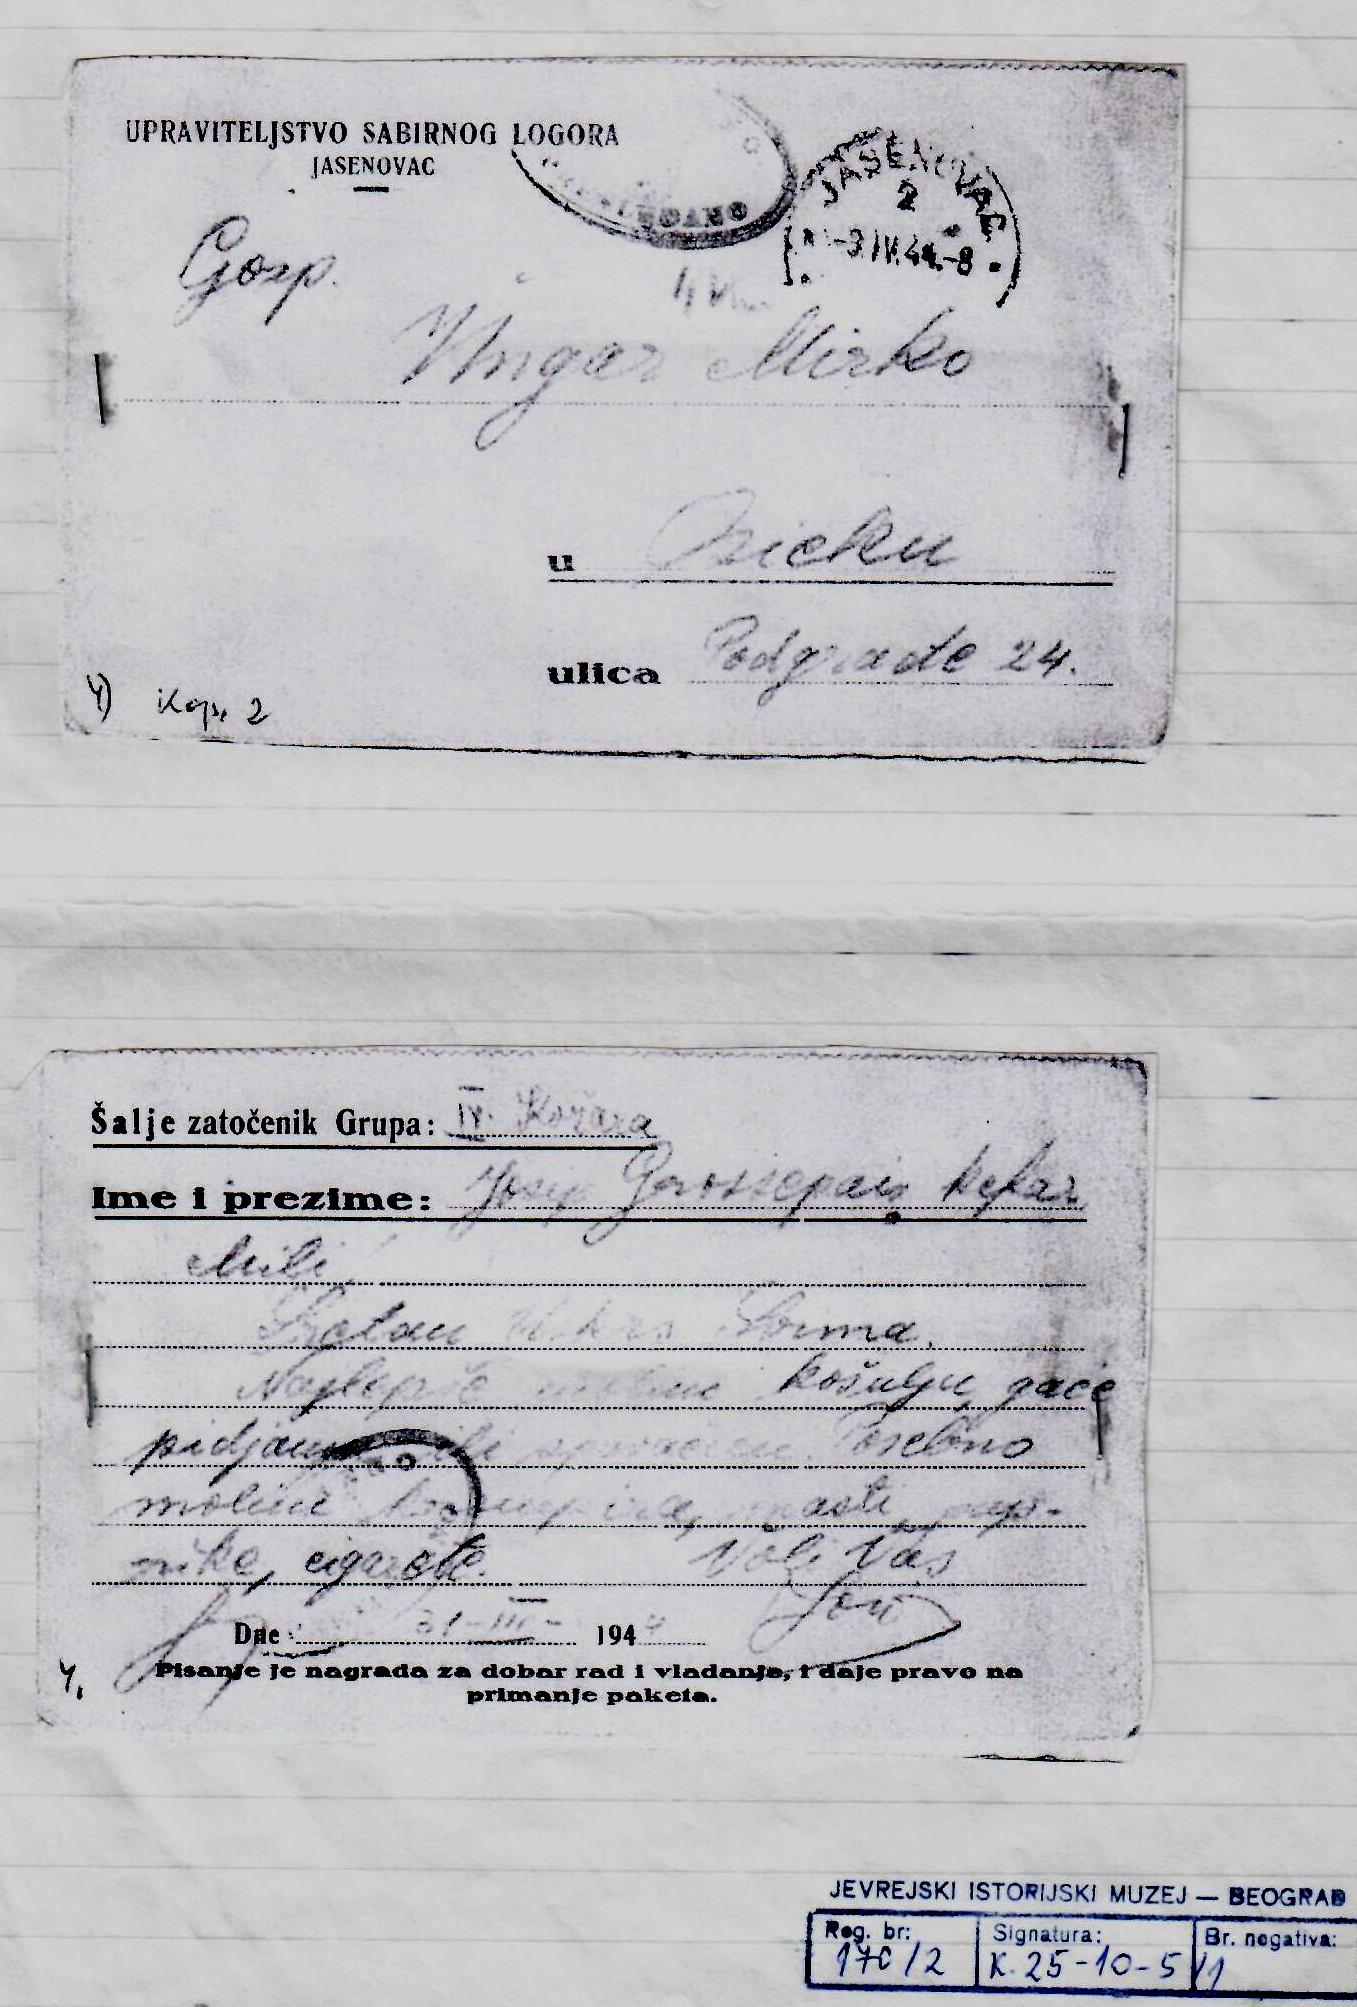 UPRAVITELJSTVO SABIRNOG LOGORA
JASENOVAC
JASENOVAC
2
Gosp.
Ungar Mirko
u Osieku
ulica Podgrađe 24.
4) Kop. 2
Šalje zatočenik Grupa: IV. Kožara
Ime i prezime: Josip
Mili,
Sretan
Najlepše molim košulju, gaće
pidjamu ili Posebno
molim masti, pap-
rike, cigarete. Voli Vas
Dne 31-III- 1944
4.
Pisanje je nagrada za dobar rad i vladanje, i daje pravo na
primanje paketa.
JEVREJSKI ISTORIJSKI MUZEJ — BEOGRAD
Reg. br: Signatura: Br. negativa:
170/2 K. 25-10-5/1